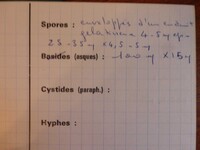 Spores : enveloppées d'un enduit
gelatineux 4-5 µ epais
25-35 µ x 4,5-5 µ
Basides (asques) : - 100 µ x 15 µ
Cystides (paraph.) :
Hyphes :